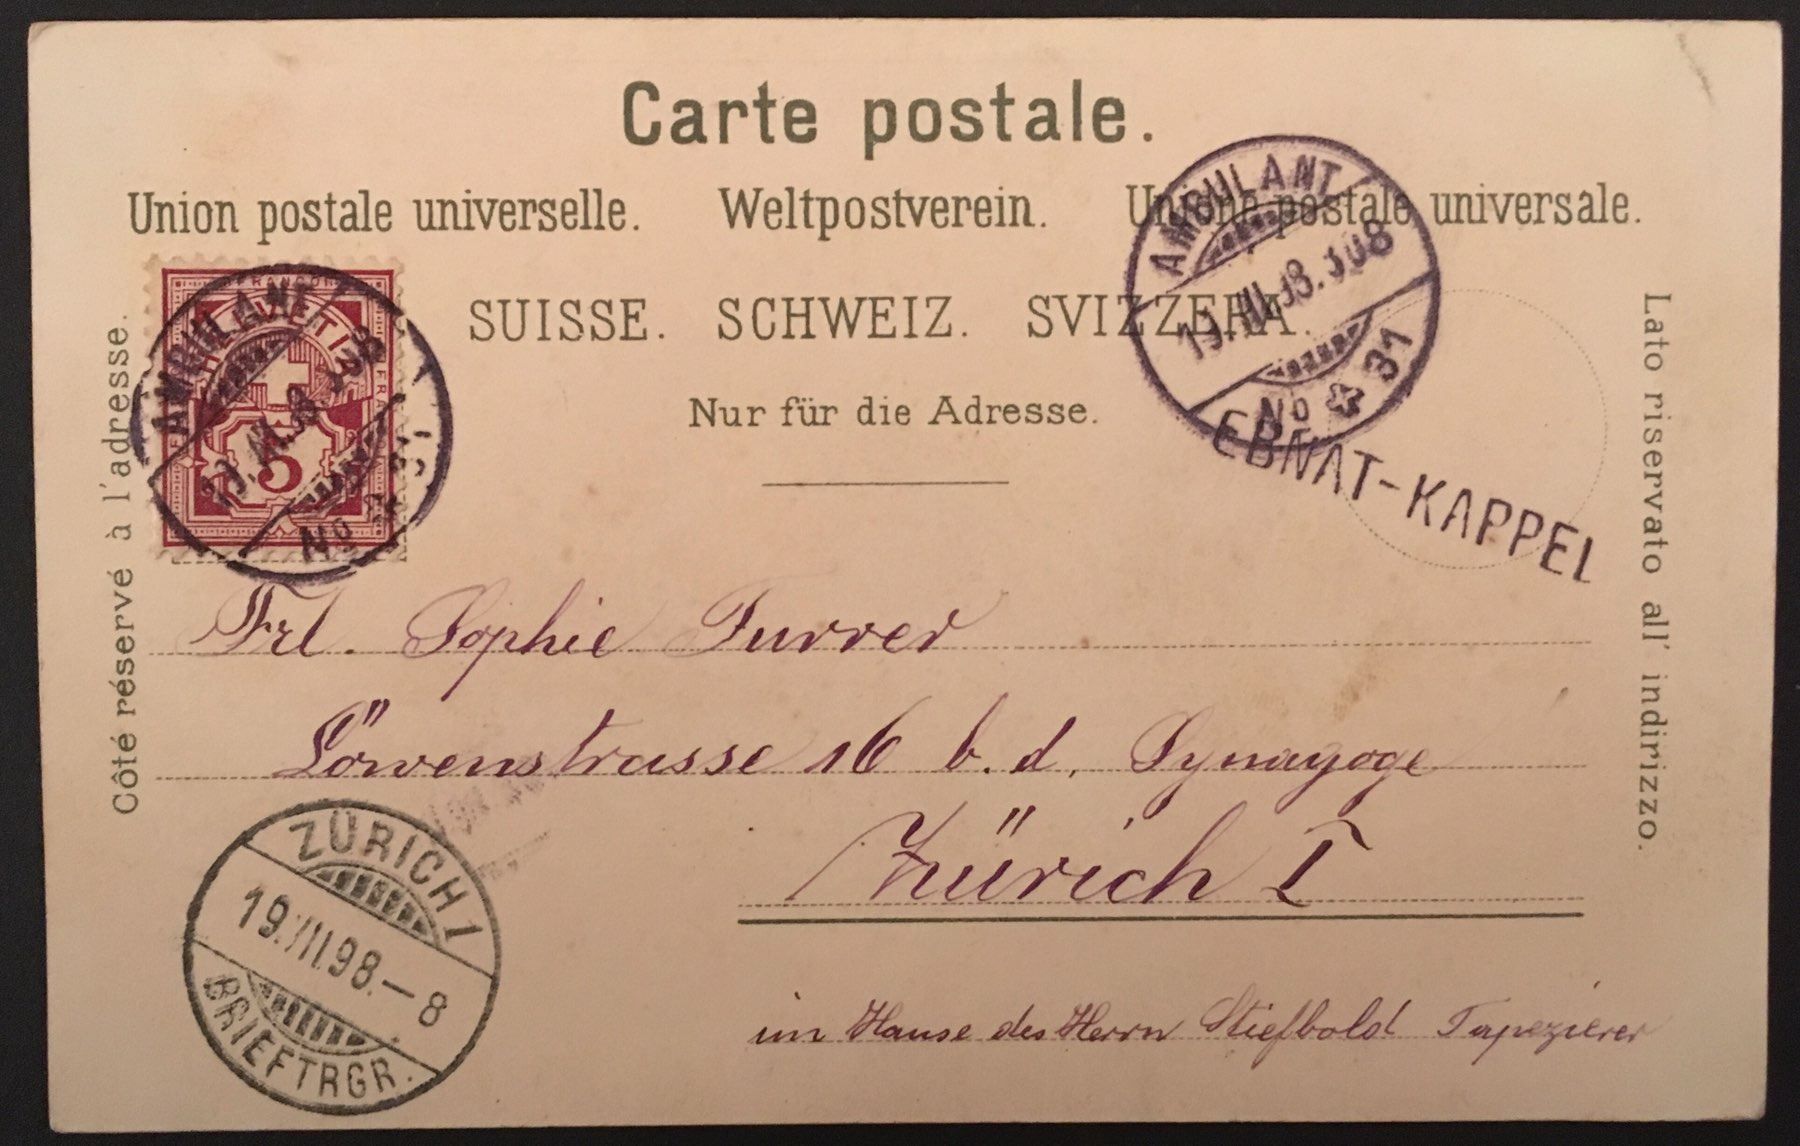 Carte postale.
Union postale universelle. Weltpostverein. Unione postale universale.
SUISSE. SCHWEIZ. SVIZZERA.
Nur für die Adresse.
Côté réservé à l'adresse.
Lato riservato all' indirizzo.
FRANCO
HELVETIA
5
AMBULANT
No
AMBULANT
No 31
EBNAT-KAPPEL
Frl. Sophie Furrer
Löwenstrasse 16 b. d. Synagoge
Zürich I
im Hause des Herrn Stiefbold Tapezierer
ZÜRICH 1
19.VII.98.–8
BRIEFTRGR.